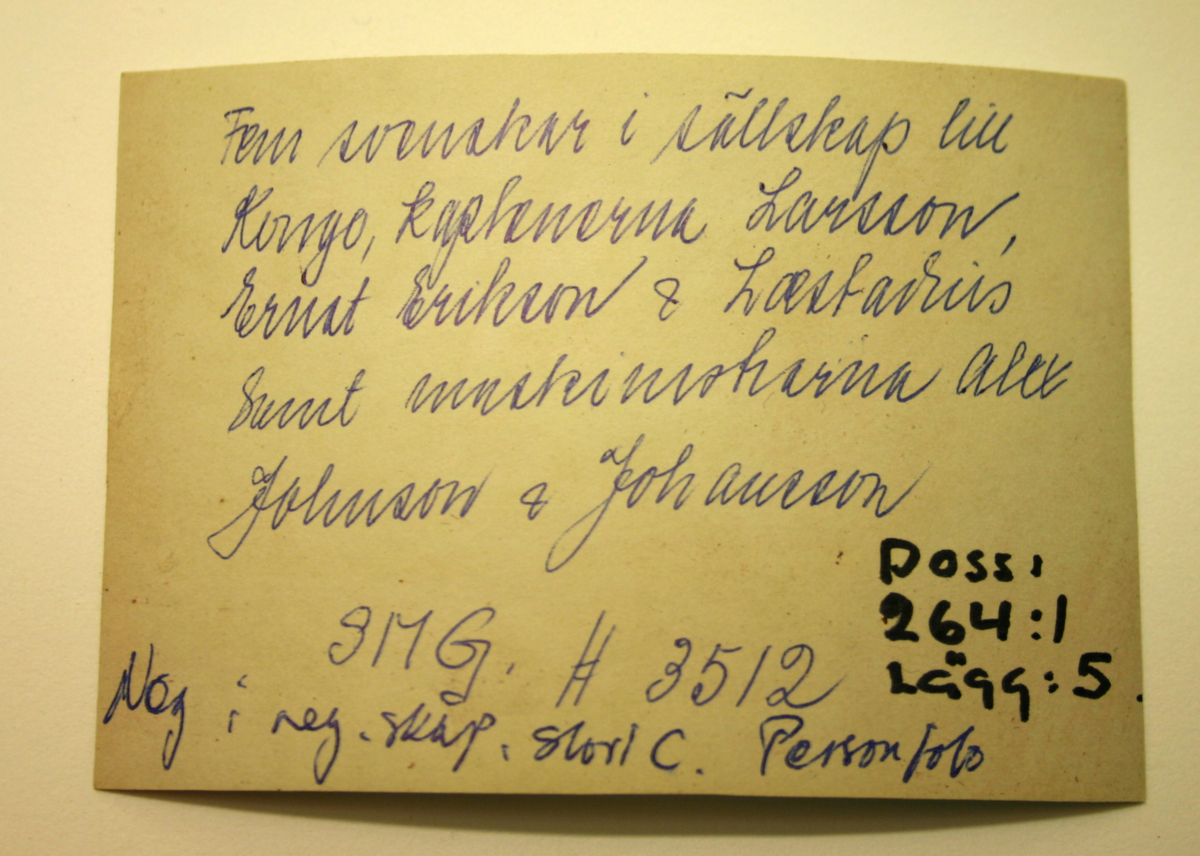 Fem svenskar i sällskap till
Kongo, kaptenerna Larsson,
Ernst Erikson & Læstadius
Samt maskinisterna Alex
Johnson & Johansson
SMG. # 3512
Doss:
264:1
Lägg: 5.
Neg i neg. skåp. Stort C. Personfoto